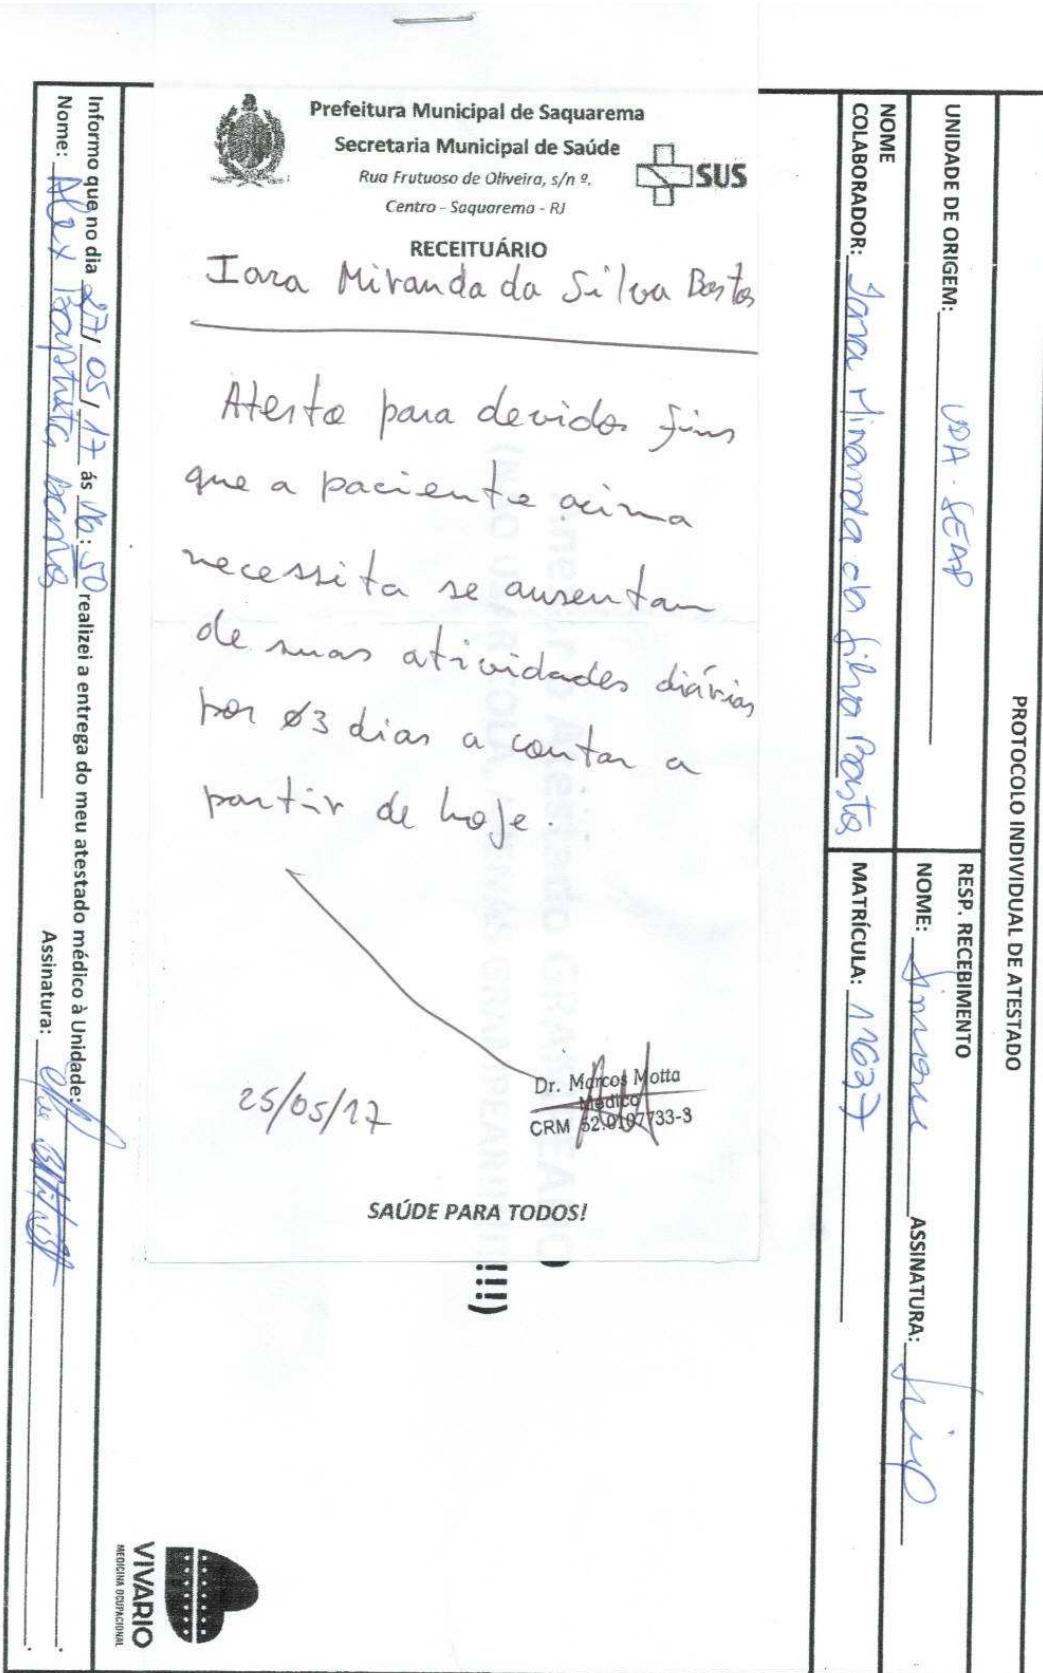 PROTOCOLO INDIVIDUAL DE ATESTADO
UNIDADE DE ORIGEM: UPA - SEAP
RESP. RECEBIMENTO
NOME: Simone ASSINATURA:
NOME
COLABORADOR: Iara Miranda da Silva Bastos
MATRÍCULA: 11637
Prefeitura Municipal de Saquarema
Secretaria Municipal de Saúde
Rua Frutuoso de Oliveira, s/n º,
Centro - Saquarema - RJ
SUS
RECEITUÁRIO
Iara Miranda da Silva Bastos
Atesto para devidos fins
que a paciente acima
necessita se ausentar
de suas atividades diárias
por 03 dias a contar a
partir de hoje.
25/05/17
Dr. Marcos Motta
Médico
CRM 52.0107733-3
SAÚDE PARA TODOS!
!!!!)
Informo que no dia 27/05/17 ás 16:50 realizei a entrega do meu atestado médico à Unidade:
Nome: Alex Baptista Assinatura:
VIVARIO
MEDICINA OCUPACIONAL